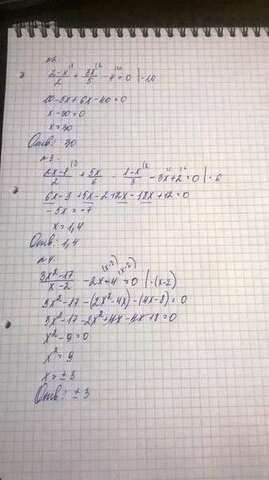 (2-x)/2 + 3x/5 - 4 = 0 | ·10
10-5x+6x-40=0
x-30=0
x=30
Отв: 30
(2x-1)/2 + 5x/6 - (1-x)/3 - 3x+2=0 | ·6
6x-3+5x-2+2x-18x+12=0
-5x=-7
x=1,4
Отв: 1,4
(3x²-17)/(x-2) - 2x+4=0 | ·(x-2)
3x²-17-(2x²-4x)-(4x-8)=0
3x²-17-2x²+4x-4x+8=0
x²-9=0
x²=9
x=±3
Отв: ±3